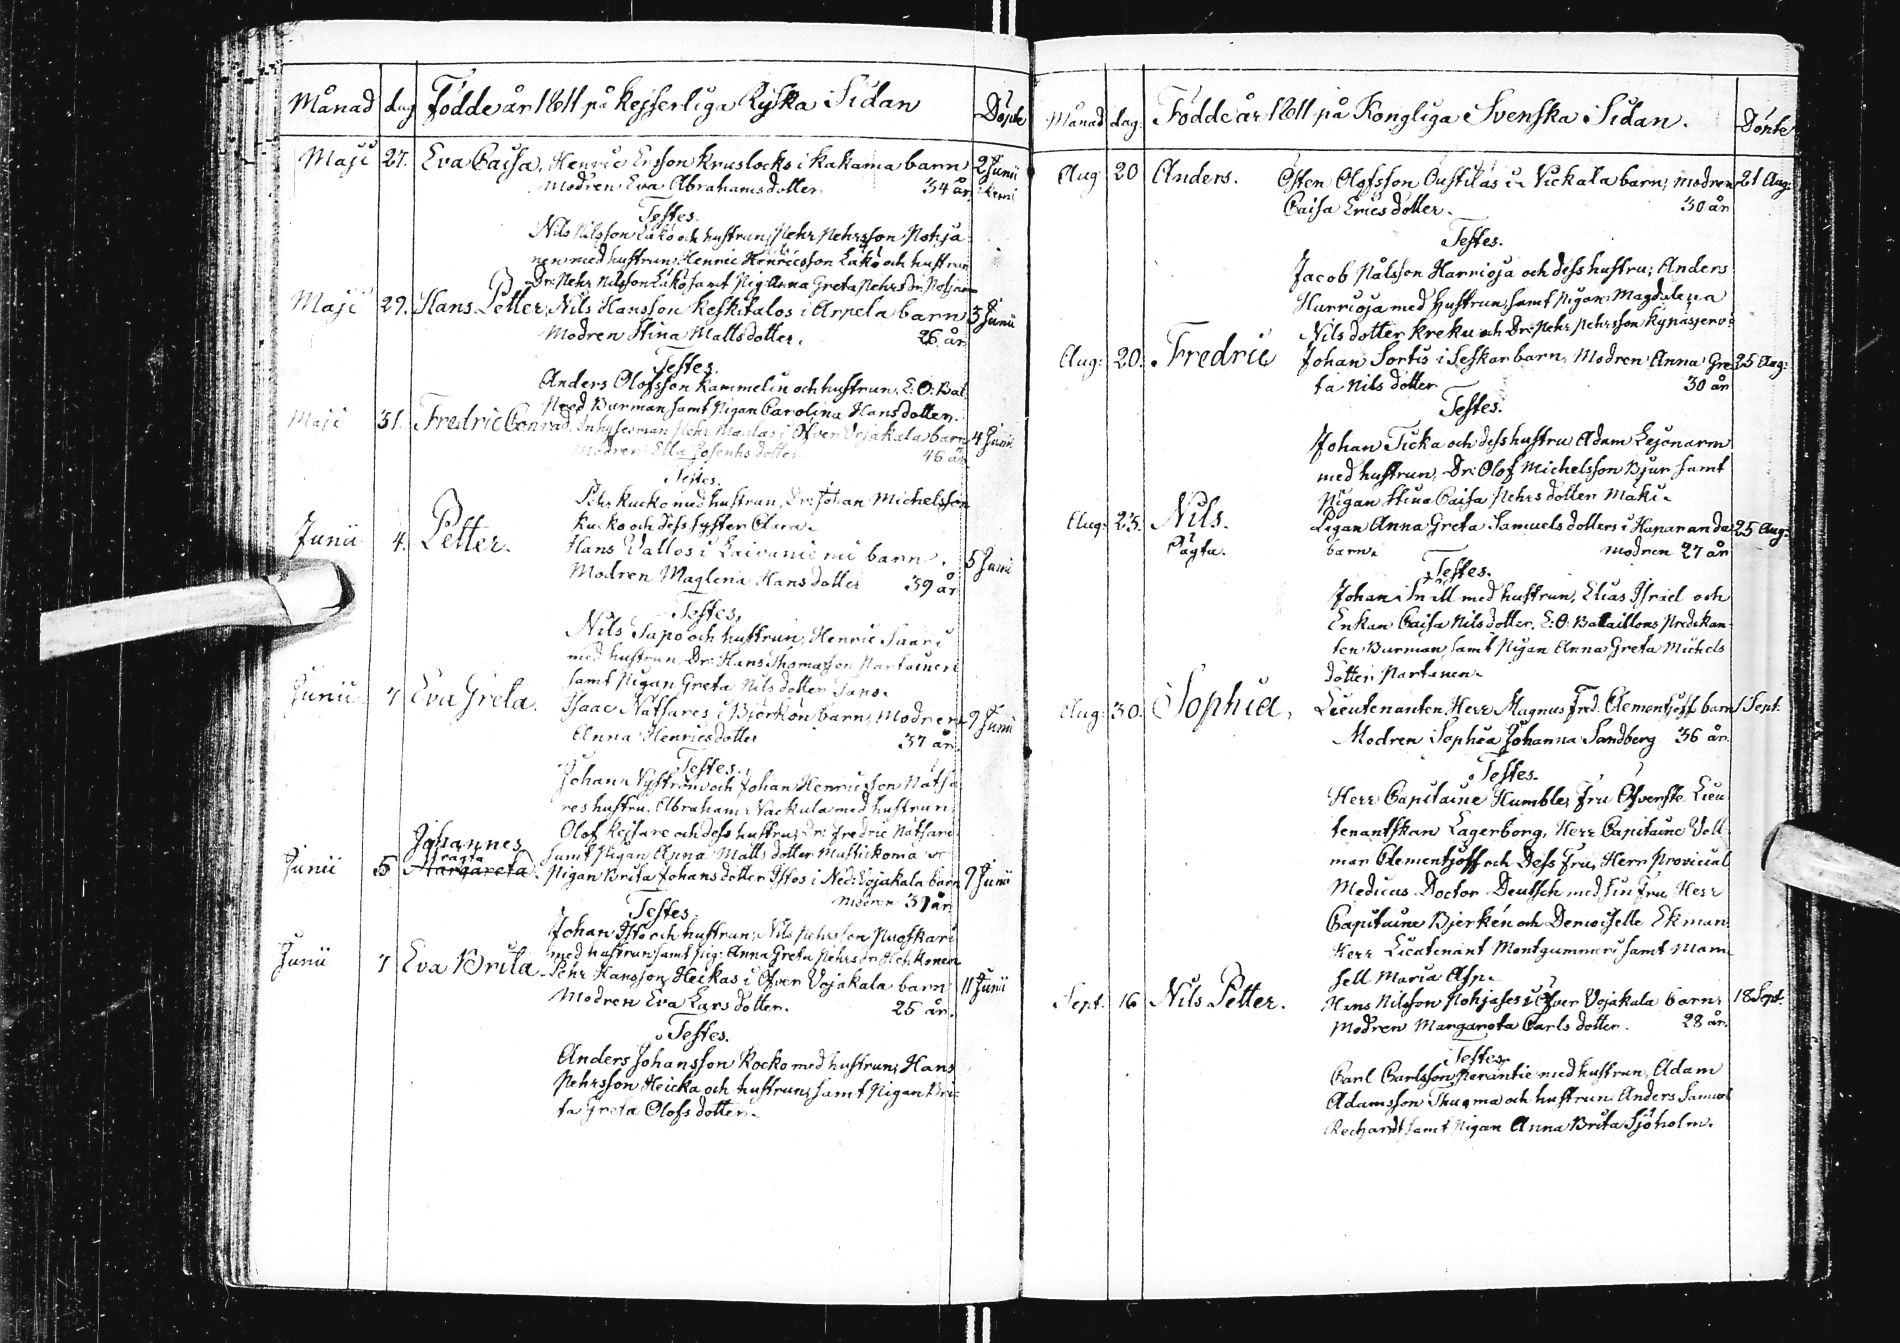 Månad dag Födde år 1811 på Kejserliga Ryska Sidan Döpte
Maji 27. Eva Caisa, Henric Ersson Kruslocks i Kakama barn 2 Junii
Modren Eva Abrahamsdotter 34 år
Testes.
Nils Nilsson Läkö och hustrun, Pehr Pehrsson Pohja
nen med hustrun, Henric Henricsson Läkö och hustrun
Dr: Pehr Nilsson Läkö samt Pig: Anna Greta Pehrs Dr:
Maji 29. Hans Petter, Nils Hansson Keskitalos i Arpela barn 3 Junii
Modren Stina Mattsdotter. 26 år.
Testes.
Anders Olofsson Kammelin och hustrun. E: O: Bat:
Pred Burman samt Pigan Carolina Hansdotter.
Maji 31. Fredric Conrad, Inhyseman Pehr i Öfver Vojakala barn 4 Junii
Modren Ella Josephsdotter 46 år
Testes.
Pehr Kucko med hustrun, Dr: Johan Michelsson
Kucko och dess syster Clara.
Junii 4. Petter. Hans Vallos i Laivaniemi barn. 5 Junii
Modren Maglena Hansdotter 39 år
Testes,
Nils Sapo och hustrun, Henric Saari
med hustrun, Dr: Hans Thomasson Partainen
samt Pigan Greta Nilsdotter Sans.
Junii 7 Eva Greta. Isaac Natsares i Björkön barn, Modren 9 Junii
Anna Henricsdotter 37 år.
Testes.
Johan Nyström och Johan Henricsson Natsa
res hustru. Abraham Vackula med hustrun
Olof Kejsare och dess hustru, Dr: Fredric Natsare
Johannes samt Pigan Anna Matts dotter Mustickoma
oägta
Junii 5 Margareta. Pigan Brita Johansdotter Istos i Ned: Vojakala barn 9 Junii
Modren 31 år
Testes
Johan Isto och hustrun, Nils Pehrsson Puotkari
med hustrun samt Pig: Anna Greta Pehrs dr:
Junii 7 Eva Brita Pehr Hansson Heickas i Öfver Vojakala barn 11 Junii
Modren Eva Larsdotter. 25 år.
Testes.
Anders Johansson Rocko med hustrun, Hans
Pehrsson Heicka och hustrun, samt Pigan Bri-
ta Greta Olofsdotter.
Månad dag. Födde år 1811 på Kongliga Svenska Sidan. Döpte
Aug 20 Anders. Östen Olofsson Oustilas i Vickala barn, modren 21 Aug:
Caisa Ericsdotter. 30 år
Testes.
Jacob Pålsson Harrioja och dess hustru, Anders
Hurrioja med hustrun, samt Pigan Magdalena
Nilsdotter Kreku och Dr: Pehr Pehrsson
Aug: 20. Fredric Johan Sortis i Seskar barn, Modren Anna Gre 25 Aug:
ta Nilsdotter 30 år
Testes.
Johan Ticka och dess hustru Adam Lejonarm
med hustrun, Dr: Olof Michelsson Bjur samt
Pigan Stina Caisa Pehrsdotter Mäki.
Aug: 23. Nils. Pigan Anna Greta Samuelsdotters i Haparanda 25 Aug:
oägta. barn. modren 27 år
Testes.
Johan Snäll med hustrun, Elias Israel och
Enkan Caisa Nilsdotter, E: O: Bataillons Predikan
ten Burman, samt Pigan Anna Greta Michels
dotter Partanen.
Aug: 30. Sophia, Lieutenanten Herr Magnus Fred: Clementjoff barn 1 Sept.
Modren Sophia Johanna Sandberg 36 år.
Testes.
Herr Capitaine Humble, Fru Öfverste Lieu
tenantskan Lagerborg, Herr Capitaine Voll
mar Clementjoff och Dess Fru, Herr Provicial
Medicus Doctor Deutsch med sin Fru Herr
Capitaine Bjerkén och Demoiselle Ekman
Herr Lieutenant Montgummeri samt Mam
sell Maria Asp.
Sept. 16 Nils Petter. Hans Nilsson Pohjases i Öfver Vojakala barn, 18 Sept.
Modren Margareta Carlsdotter. 28 år.
Testes
Carl Carlsson Perantie med hustrun, Adam
Adamsson Thurma och hustrun Anders Samuel
Rechardt samt Pigan Anna Brita Sjöholm.